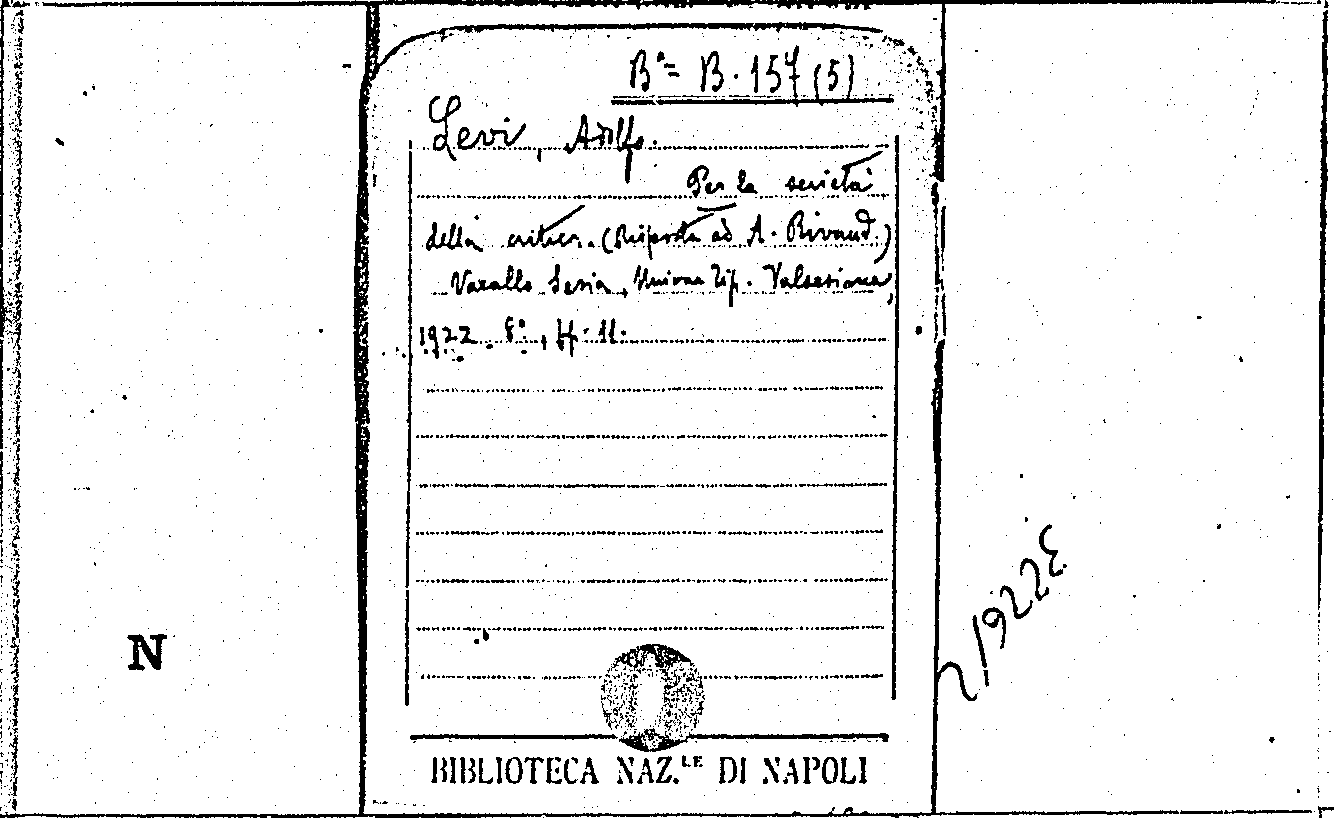 Bª= B. 157 (5)
Levi, Adolfo.
Per la serietà
della critica. (Risposta ad A. Rivaud.)
Varallo Sesia, Unione Tip. Valsesiana,
1922. 8°, pp. 11.
N
BIBLIOTECA NAZ.LE DI NAPOLI